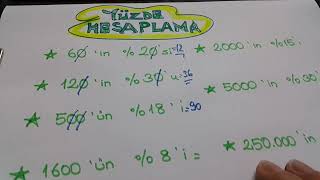 YÜZDE
HESAPLAMA
★ 60 'ın %20 'si=12
★ 2000 'in %15 'i
★ 120 'in %30 'u=36
★ 5000 'in %30
★ 500 'ün %18 'i=90
★ 1600 'ün %8 'i=
★ 250.000 'in